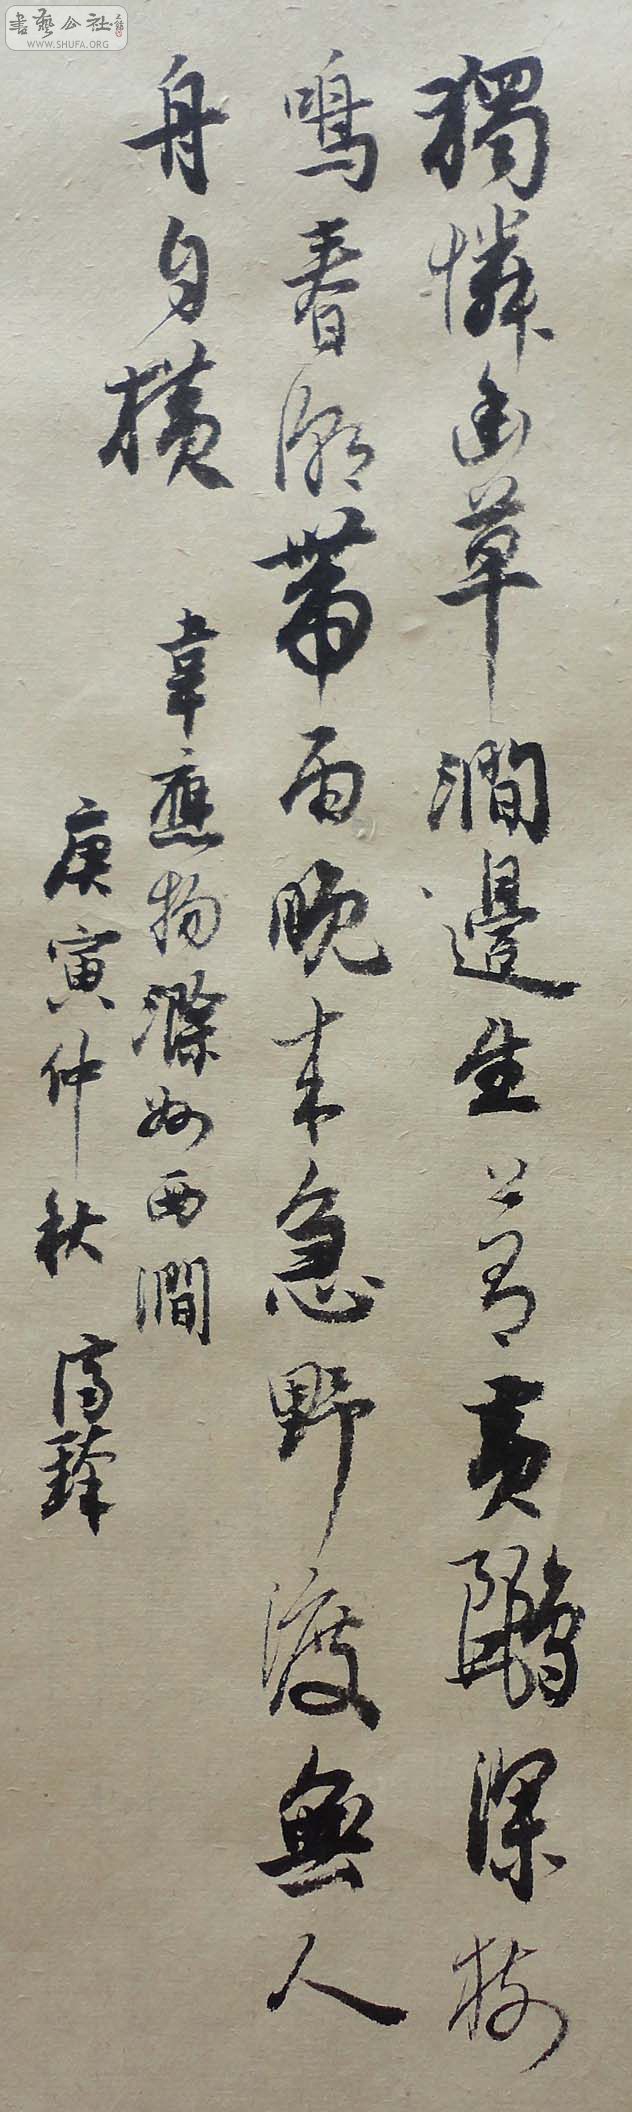 書藝公社
WWW.SHUFA.ORG
獨憐幽草澗邊生上有黃鸝深樹
鳴春潮帶雨晚來急野渡無人
舟自橫
韋應物滁州西澗
庚寅仲秋